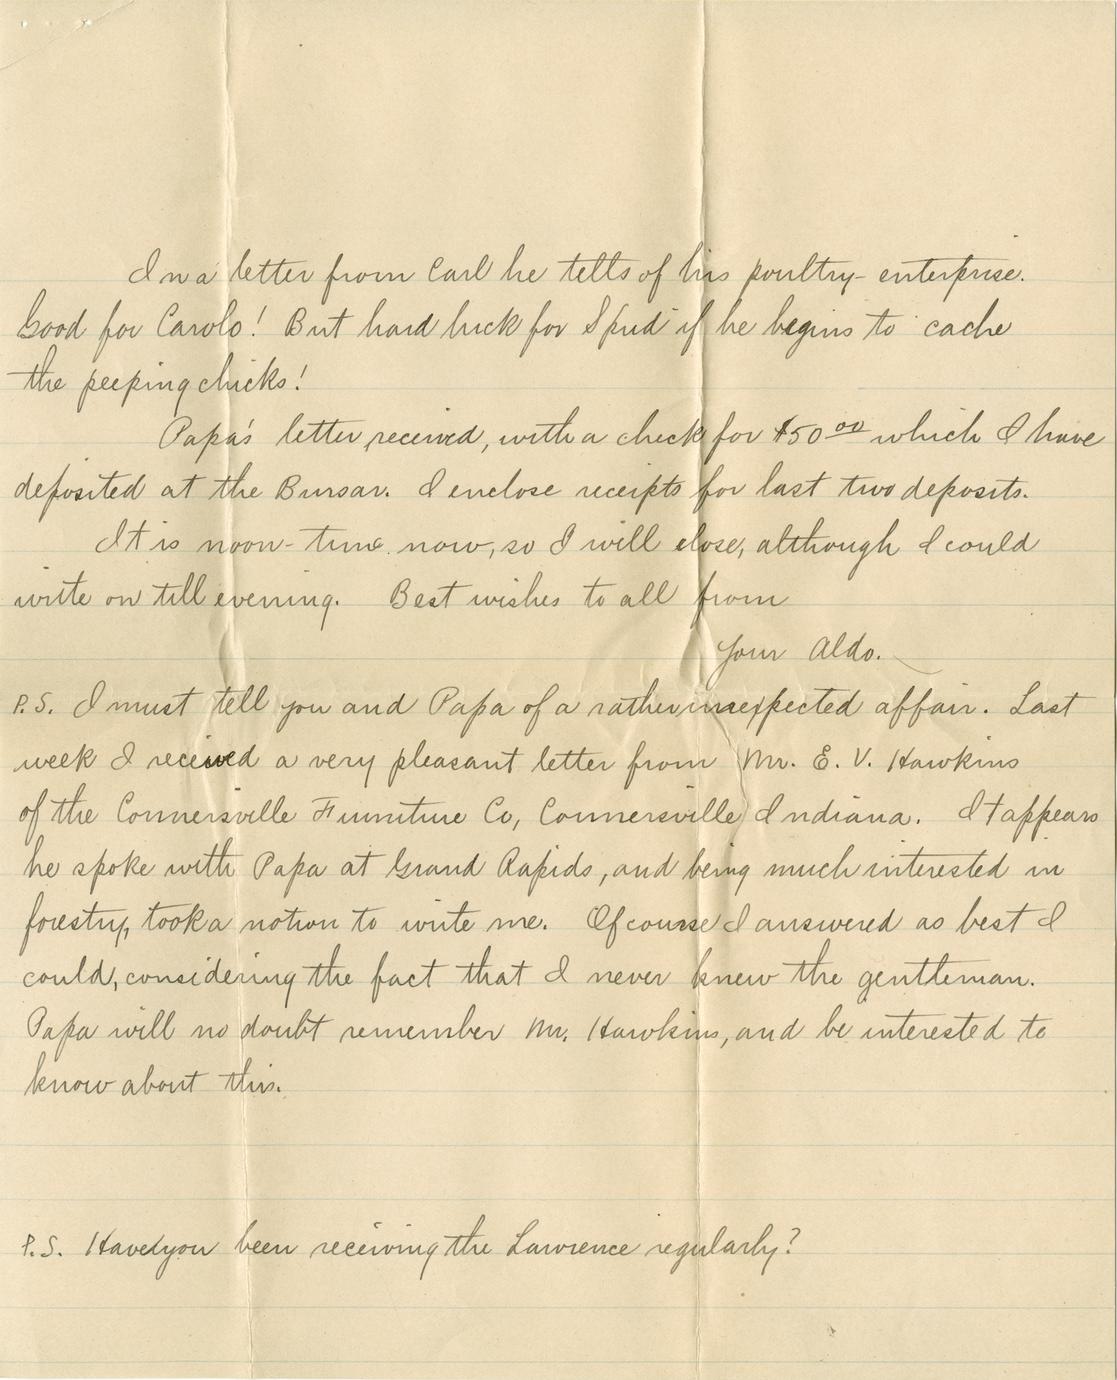 In a letter from Carl he tells of his poultry-enterprise.
Good for Carolo! But hard luck for Spud if he begins to cache
the peeping chicks!
Papa's letter received, with a check for $50.00 which I have
deposited at the Bursar. I enclose receipts for last two deposits.
It is noon-time now, so I will close, although I could
write on till evening. Best wishes to all from
Your Aldo.
P.S. I must tell you and Papa of a rather unexpected affair. Last
week I received a very pleasant letter from Mr. E. V. Hawkins
of the Connersville Furniture Co, Connersville Indiana. It appears
he spoke with Papa at Grand Rapids, and being much interested in
forestry, took a notion to write me. Of course I answered as best I
could, considering the fact that I never knew the gentleman.
Papa will no doubt remember Mr. Hawkins, and be interested to
know about this.
P.S. Have you been receiving the Lawrence regularly?